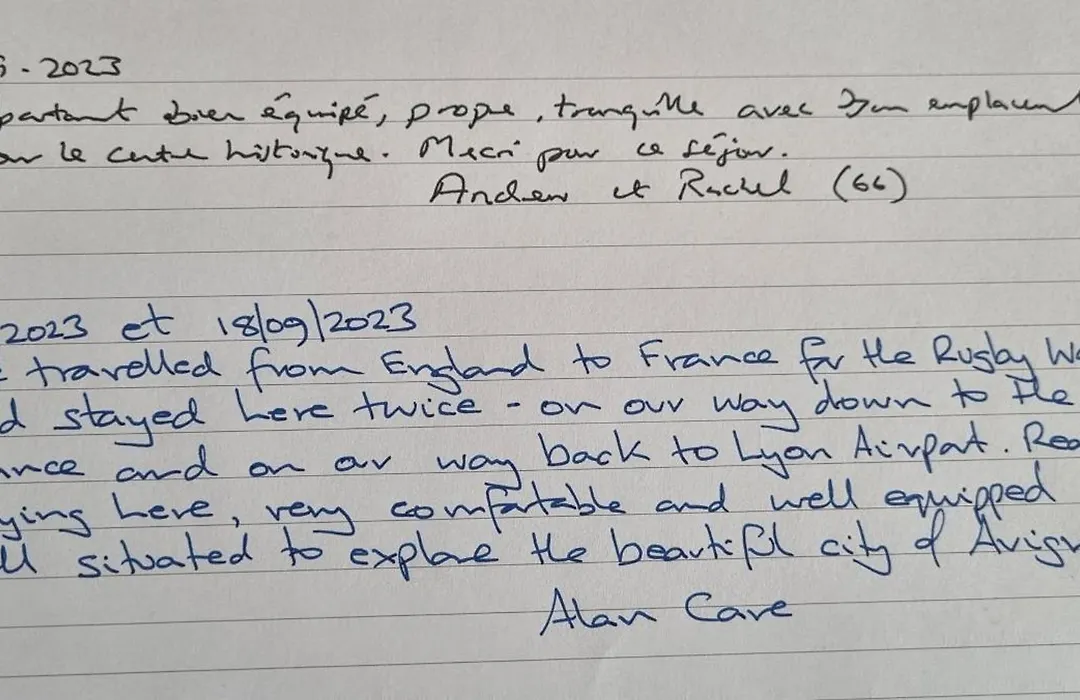 - 2023
bien équipé, propre, tranquille avec bon emplacement
le centre historique. Merci pour ce séjour.
Andrew et Rachel (66)
2023 et 18/09/2023
travelled from England to France for the Rugby
stayed here twice - on our way down to the
and on our way back to Lyon Airport.
here, very comfortable and well equipped
situated to explore the beautiful city of
Alan Cave